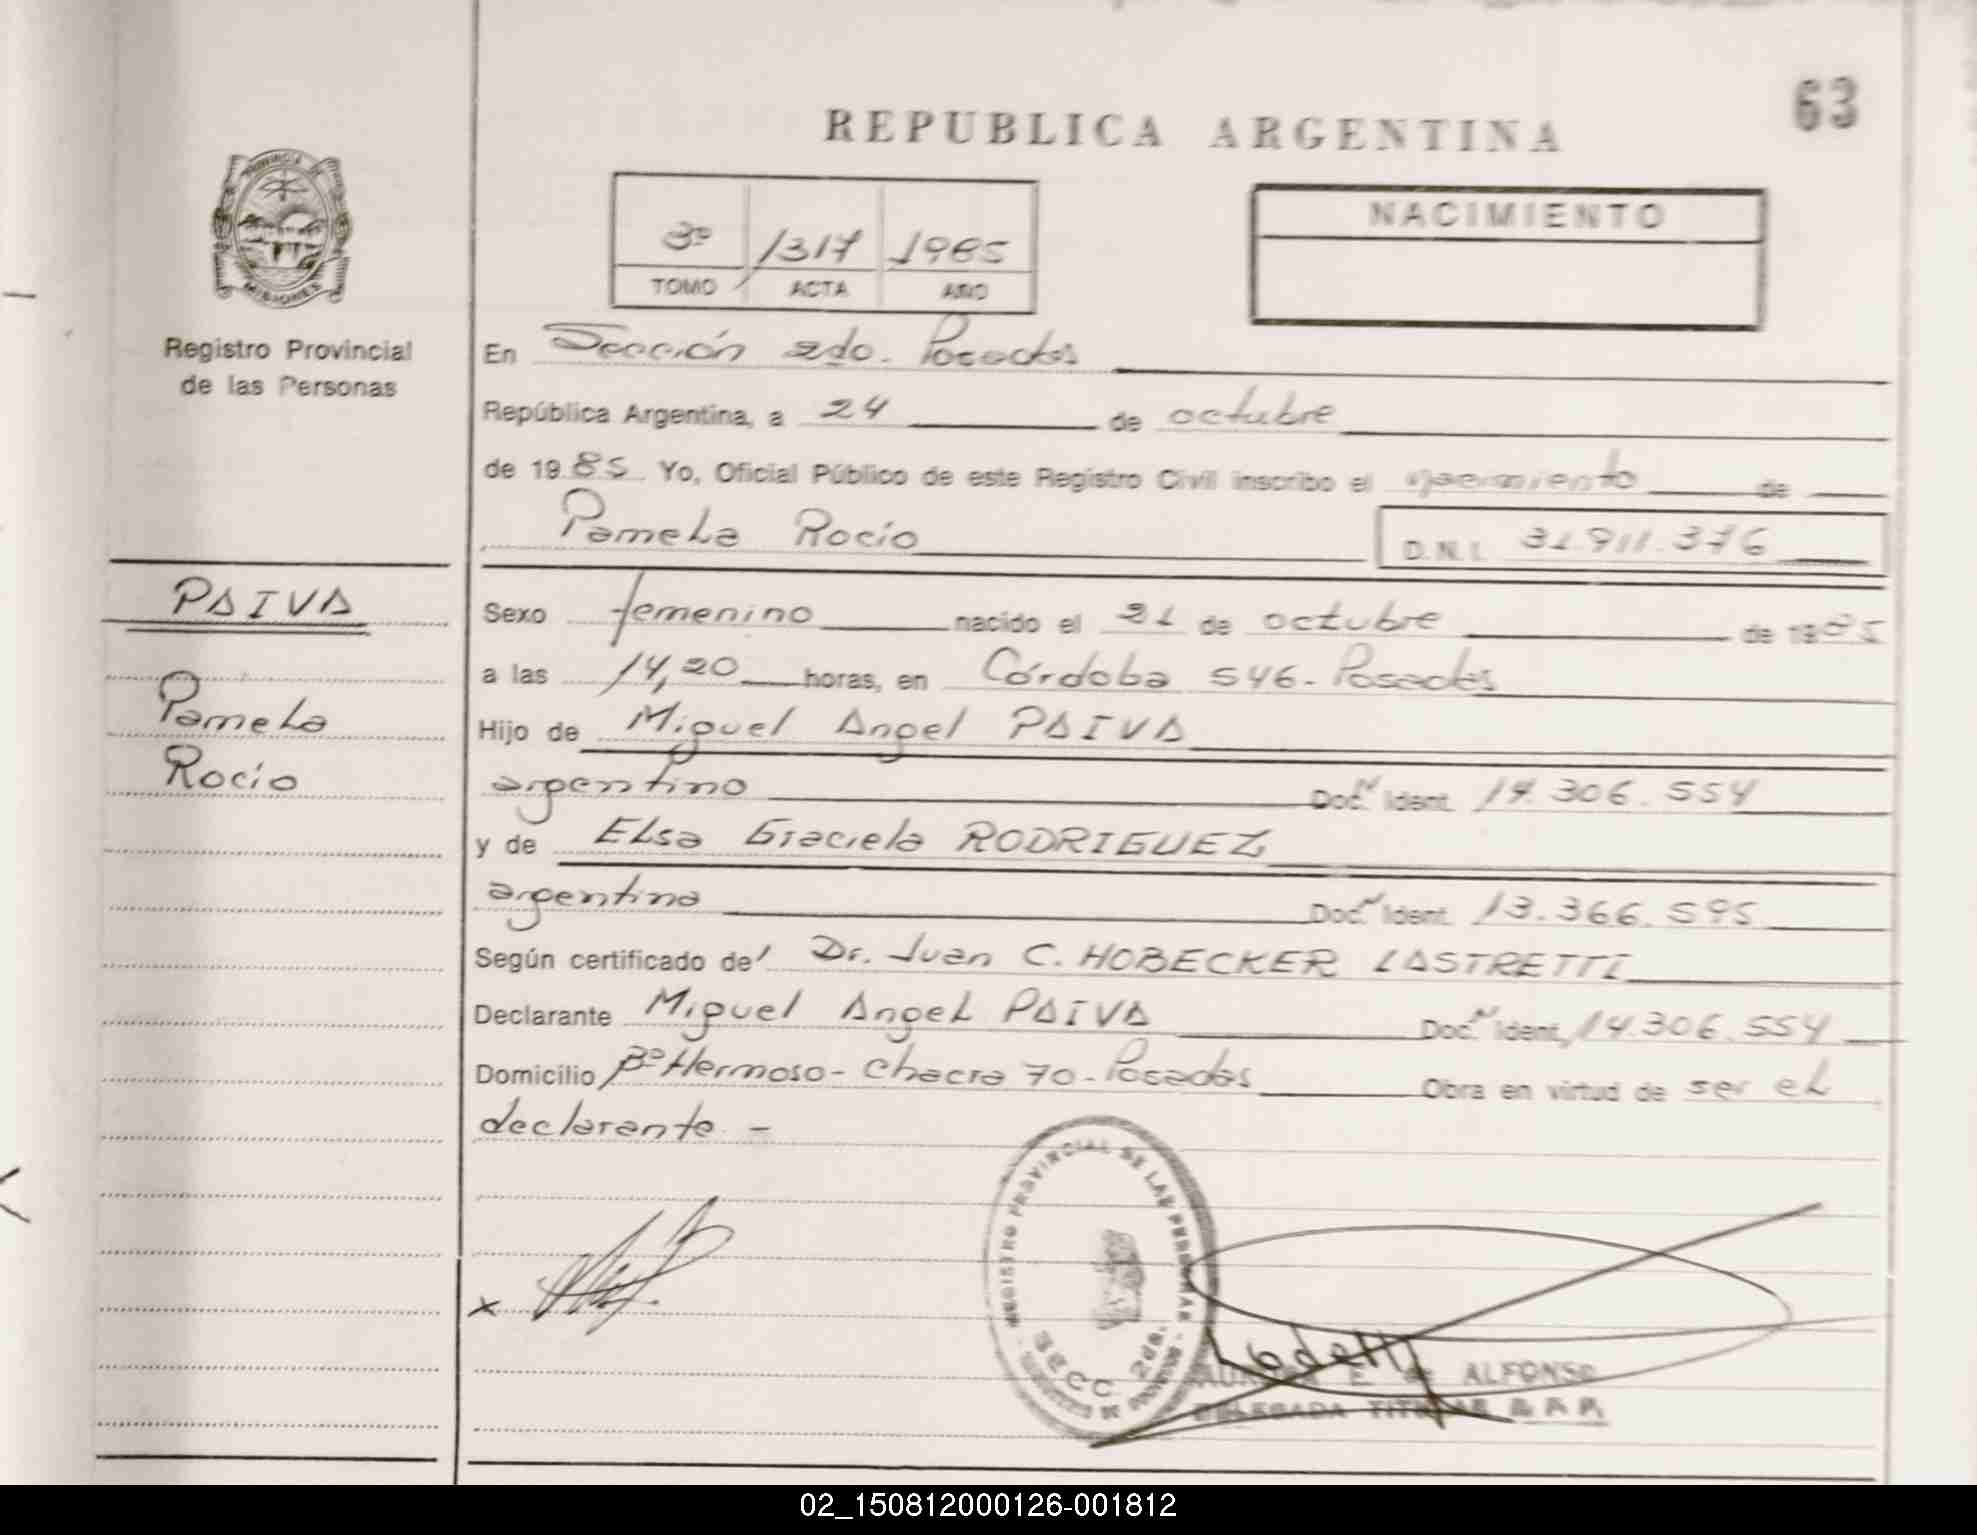 63
REPUBLICA ARGENTINA
PROVINCIA DE
MISIONES
Registro Provincial
de las Personas
3º /317 1985
TOMO ACTA AÑO
NACIMIENTO
En Sección 2do. Posadas
República Argentina, a 24 de octubre
de 1985 Yo, Oficial Público de este Registro Civil inscribo el nacimiento de
Pamela Rocío
D.N.I. 31.911.376
PAIVA
Pamela
Rocío
Sexo femenino nacido el 21 de octubre de 1985
a las 14,20 horas, en Córdoba 546-Posadas
Hijo de Miguel Angel PAIVA
argentino Doc. Ident. 14.306.554
y de Elsa Graciela RODRIGUEZ
argentina Doc. Ident. 13.366.595
Según certificado de Dr. Juan C. HOBECKER LASTRETTI
Declarante Miguel Angel PAIVA Doc. Ident. 14.306.554
Domicilio Bº Hermoso- Chacra 70-Posadas Obra en virtud de ser el
declarante -
REGISTRO PROVINCIAL DE LAS PERSONAS
SECC 2da.
x
E. de ALFONSO
DELEGADA TITULAR R. P. P.
02_150812000126-001812